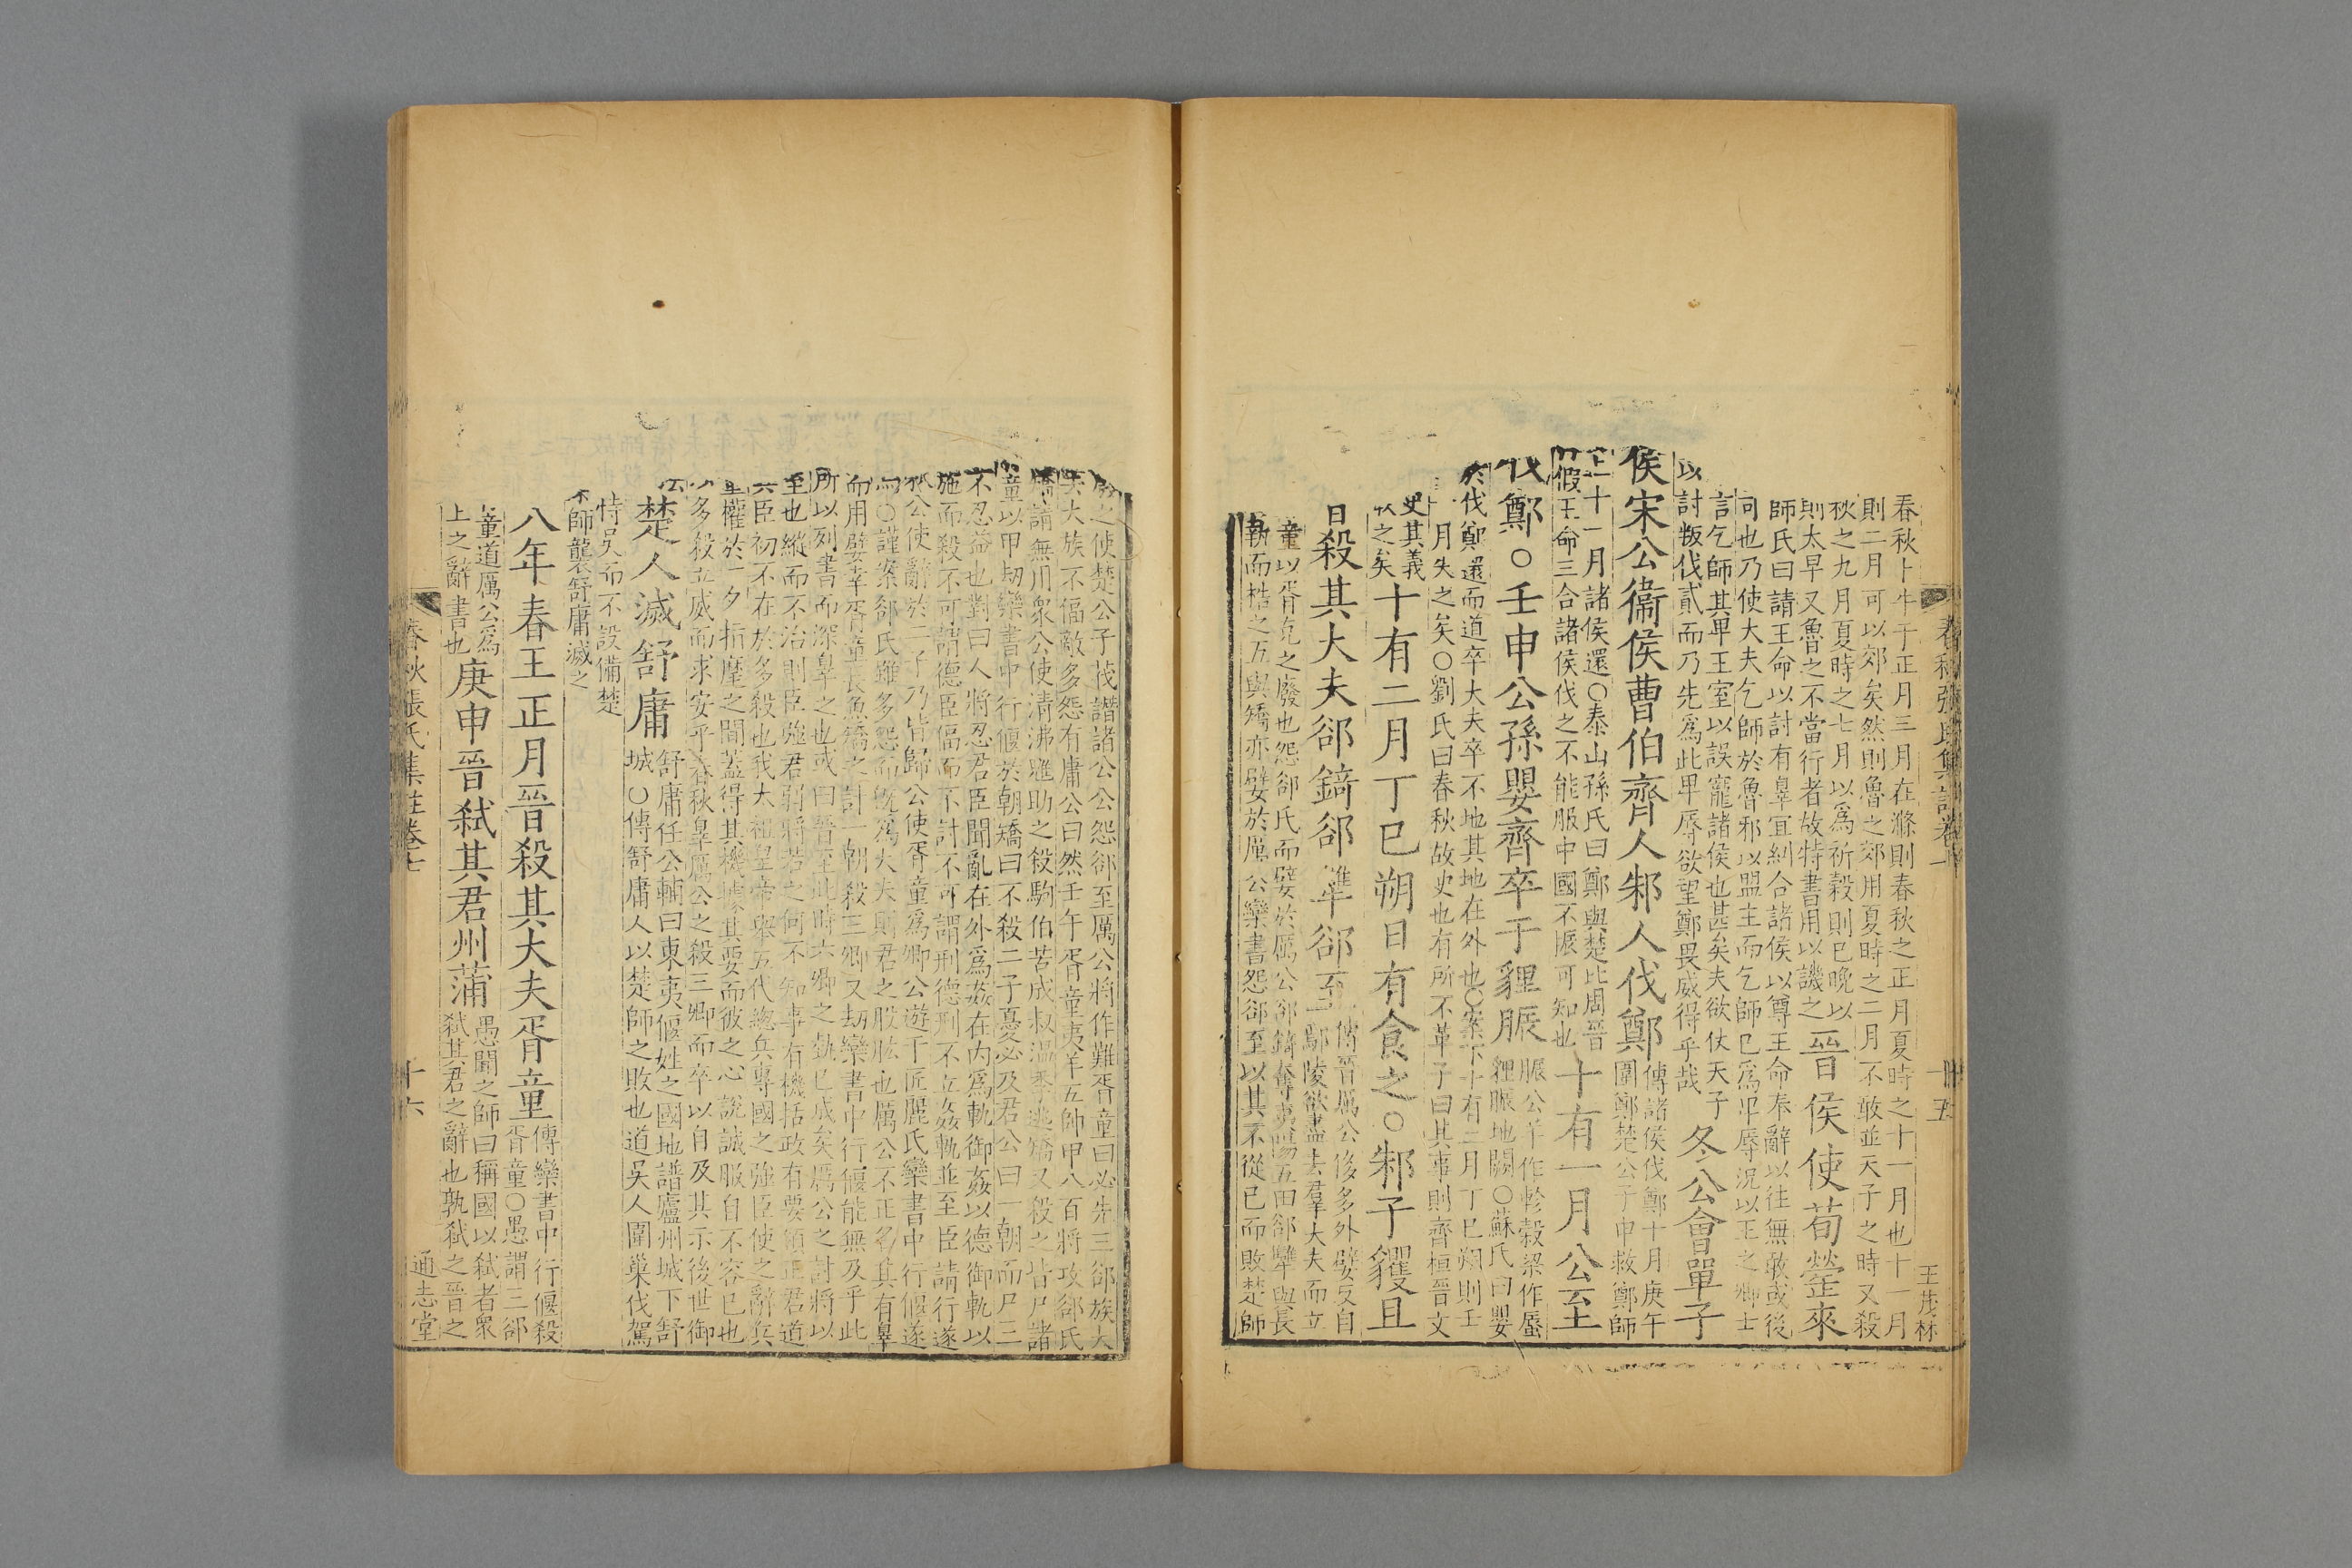 春秋張氏集註卷
十五
王茂林
春秋卜牛于正月三月在滌則春秋之正月夏時之十一月也十一月
則二月可以郊矣然則魯之郊用夏時之二月不敢並天子之時又殺
秋之九月夏時之七月以爲祈穀則已晚以
則太早又魯之不當行者故特書用以譏之
晉侯使荀罃來
師氏曰請王命以討有辠宜糾合諸侯以尊王命奉辭以往無敢或後
司也乃使大夫乞師於魯邪以盟主而乞師已爲卑辱况以王之卿士
言乞師其卑王室以誤寵諸侯也甚矣夫欲仗天子
以討叛伐貳而乃先爲此卑辱欲望鄭畏威得乎哉
冬公會單子
侯宋公衞侯曹伯齊人邾人伐鄭
傳諸侯伐鄭十月庚午
圍鄭楚公子申救鄭師
十一月諸侯還○泰山孫氏曰鄭與楚比周晉
假王命三合諸侯伐之不能服中國不脤可知也
十有一月公至
伐鄭○壬申公孫嬰齊卒于貍脤
脤公羊作軫穀梁作蜃
貍脤地闕○蘇氏曰嬰
於伐鄭還而道卒大夫卒不地其地在外也○案下十有二月丁巳朔則壬
月失之矣○劉氏曰春秋故史也有所不革子曰其事則齊桓晉文
史其義
之矣
十有二月丁巳朔日有食之○邾子貜且
殺其大夫郤錡郤犨郤至
傳晉厲公侈多外嬖反自
鄢陵欲盡去羣大夫而立
童以胥克之廢也怨郤氏而嬖於厲公郤錡奪夷陽五田郤犨與長
執而梏之五與矯亦嬖於厲公欒書怨郤至以其不從已而敗楚師
之使楚公子茷譖諸公公怨郤至厲公將作難胥童曰必先三郤族大
大族不偪敵多怨有庸公曰然壬午胥童夷羊五帥甲八百將攻郤氏
請無用衆公使清沸魋助之殺駒伯苦成叔温季逃矯又殺之皆尸諸
童以甲刧欒書中行偃於朝矯曰不殺二子憂必及君公曰一朝而尸三
不忍益也對曰人將忍君臣聞亂在外爲姦在内爲軌御姦以德御軌以
施而殺不可謂德臣偪而不討不可謂刑德刑不立姦軌並至臣請行遂
公使辭於二子乃皆歸公使胥童爲卿公遊于匠麗氏欒書中行偃遂
○謹案郤氏雖多怨而旣爲大夫則君之股肱也厲公不正名其有辠
而用嬖幸胥童長魚矯之計一朝殺三卿又刧欒書中行偃能無及乎此
所以列書而深辠之也或曰晉至此時六卿之埶已成矣厲公之討將以
至也縱而不治則臣強君弱將若之何不知事有機括政有要領正君道
臣初不在於多殺也我太祖皇帝舉五代總兵專國之強臣使之辭兵
權於一夕指麾之間蓋得其機據其要而彼之心說誠服自不容已也
多殺立威而求安乎春秋辠厲公之殺三卿而卒以自及其示後世御
楚人滅舒庸
舒庸任公輔曰東夷偃姓之國地譜廬州城下舒
城○傳舒庸人以楚師之敗也道吳人圍巢伐駕
恃吳而不設備楚
師襲舒庸滅之
八年春王正月晉殺其大夫胥童
傳欒書中行偃殺
胥童○愚謂三郤
童道厲公爲
上之辭書也
庚申晉弒其君州蒲
愚聞之師曰稱國以弒者衆
弒其君之辭也孰弒之晉之
春秋張氏集註卷七
十六
通志堂